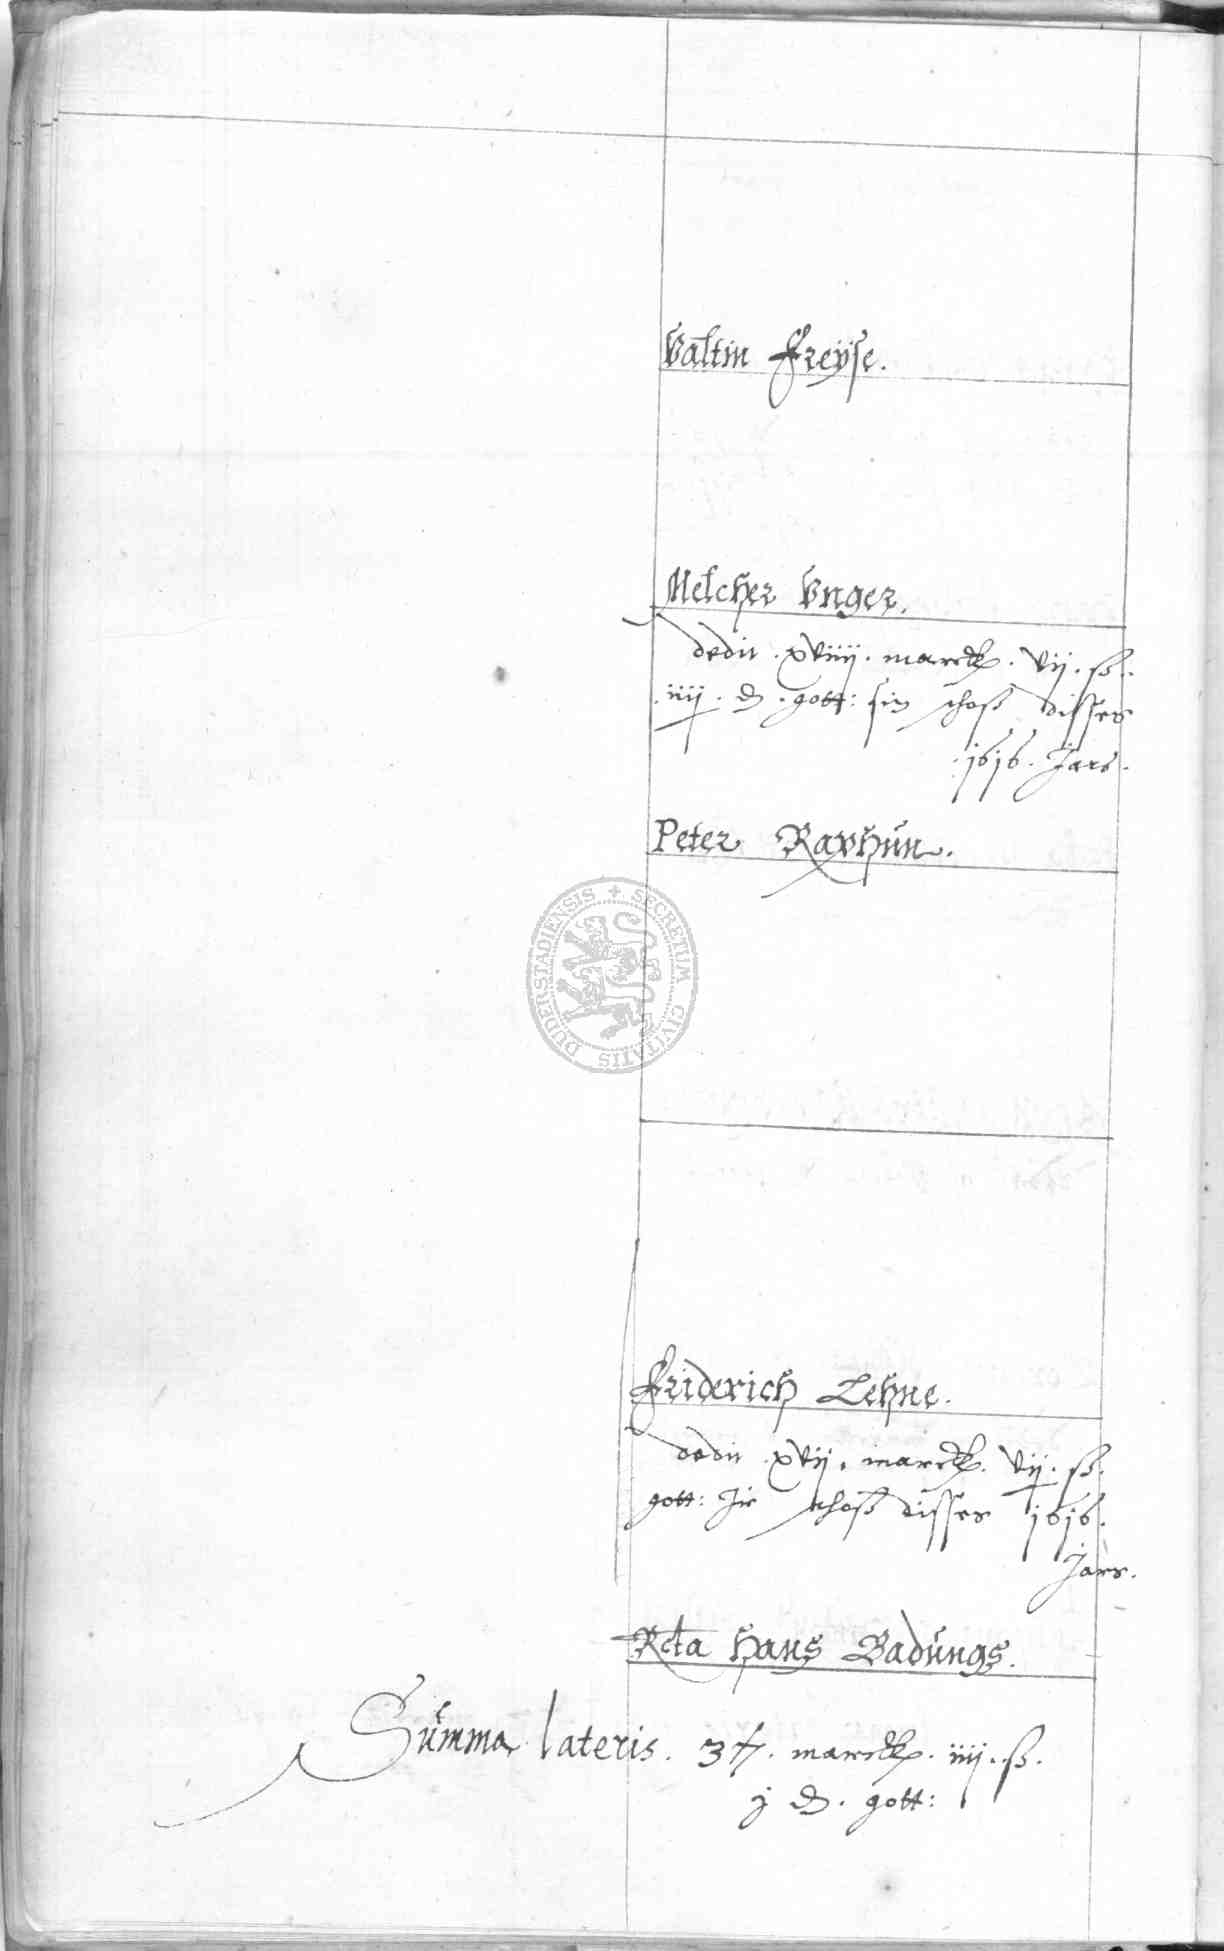 Valtin Freÿse.
Melcher Vnger.
dedit . xviiij . marck . vij . ß .
. iiij . d . gott: sin schoß disses
. 1616 . Jars .
Peter Raphún .
SECRETUM CIVITATIS DUDERSTADIENSIS
Friderich Lehne .
dedit . xvij . marck . vij . ß .
gott: Jir schoß disses 1616 .
Jars .
Rcta Hans Badúngs .
Súmma lateris . 37 . marck . iiij . ß .
j d . gott: